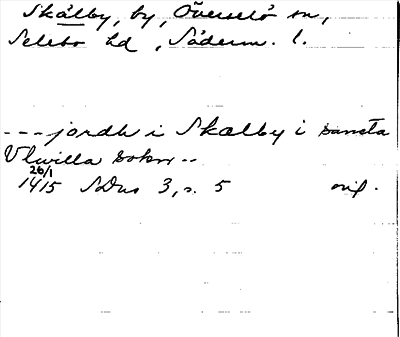 Skålby, by, Överselö sn,
Selebo hd, Söderm. l.
---jordh i Skælby i sancta
Vlwilla sokn--
26/1
1415 SDns 3, s. 5 orig.